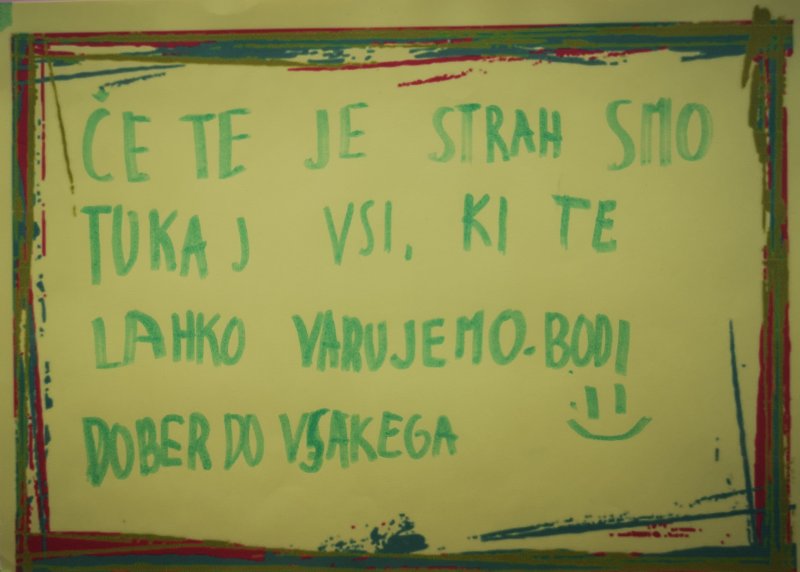 ČE TE JE STRAH SMO
TUKAJ VSI, KI TE
LAHKO VARUJEMO. BODI
DOBER DO VSAKEGA